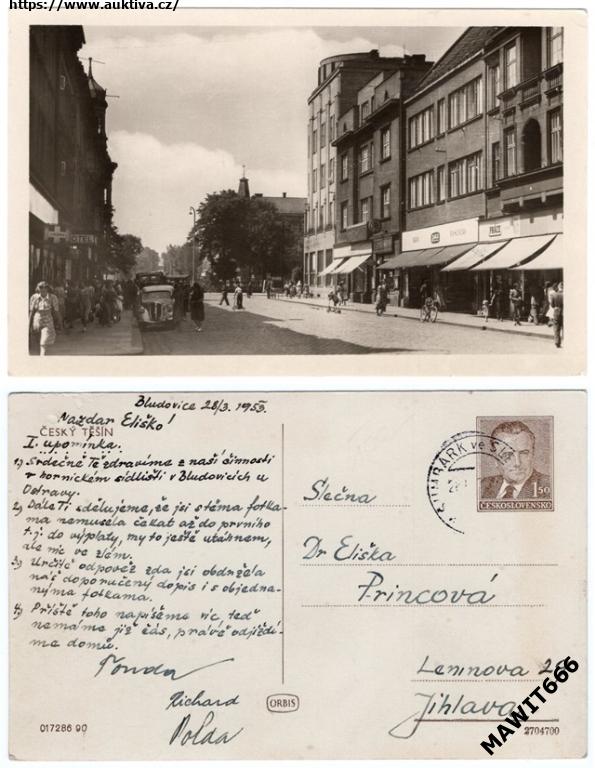 https://www.auktiva.cz/
HOTEL
PRÁCE
Bludovice 28/3. 1953.
Nazdar Eliško!
ČESKÝ TĚŠÍN
I. upomínka.
1) Srdečně Tě zdravíme z naší činnosti
v hornickém sídlišti v Bludovicích u
Ostravy.
2) Dále Ti sdělujeme, že jsi s těma fotka-
ma nemusela čekat až do prvního
t.j. do výplaty, my to ještě utáhnem,
ale nic ve zlém.
3) Určitě odpověz zda jsi obdržela
náš doporučený dopis i s objedna-
nýma fotkama.
4) Příště toho napíšeme víc, teď
nemáme již čás, právě odjíždí-
me domů.
Tonda
Richard
Polda
017286 90
ORBIS
ve Sle
1,50
ČESKOSLOVENSKO
Slečna
Dr Eliška
Princová
Leninova 28
Jihlava
2704700
MAWIT666